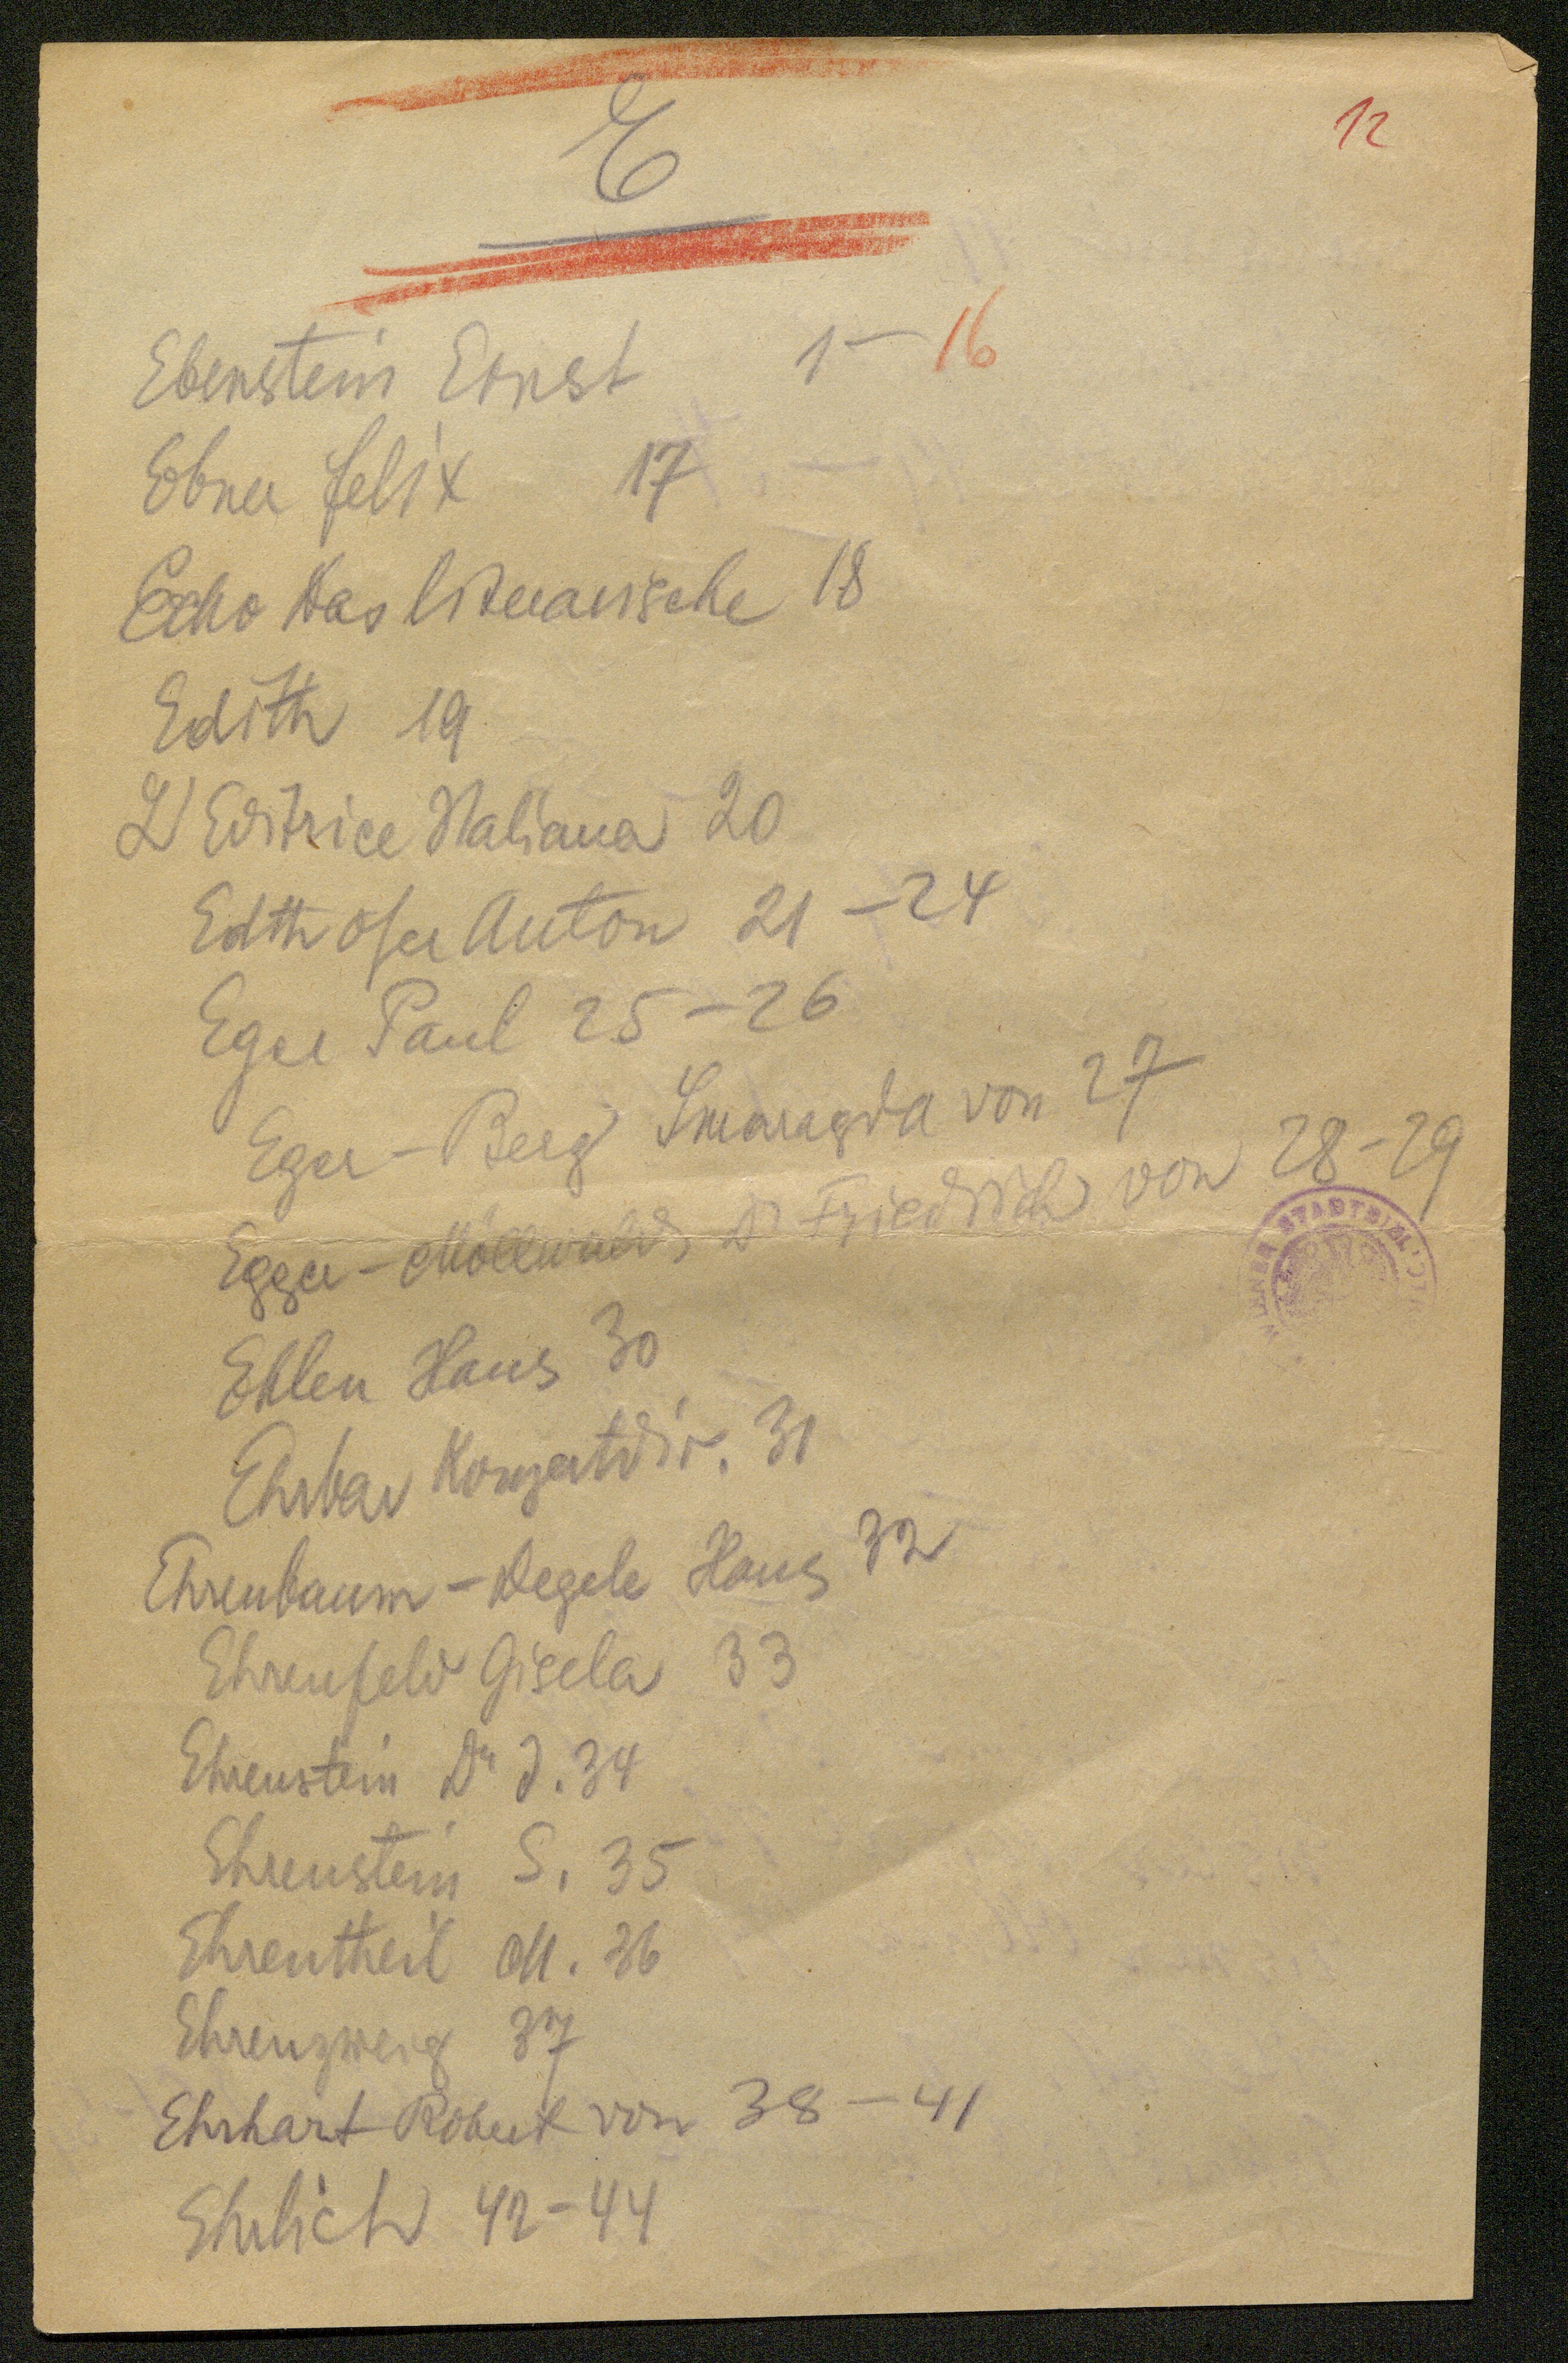 12
E
Ebenstein Ernst 1-16
Ebner Felix 17
Echo das literarische 18
Edith 19
L'Editrice Italiana 20
Edthofer Anton 21-24
Eger Paul 25-26
Eger-Berg Smaragda von 27
Egger-Möllwald, Dr Friedrich von 28-29
WIENER STADTBIBLIOTHEK
Ehlen Hans 30
Ehrbar Konzertdir. 31
Ehrenbaum-Degele Hans 32
Ehrenfeld Gisela 33
Ehrenstein Dr J. 34
Ehrenstein S. 35
Ehrentheil M. 36
Ehrenzweig 37
Ehrhart Robert von 38-41
Ehrlich 42-44